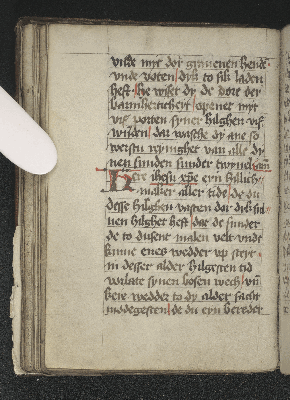 vnde myt dor grauenen hende
vnde voten dyn to sik laden
heft he wist dy de dore der
barmherticheyt openet myt
vif porten syner hilghen vif
wunden dar wasche dy ane so
werstu reynighet van alle dy
nen sunden sunder twyuel
Here ihesu eyn hillich
maker aller tide de du
desse hilghen vasten dar dik sul
uen hilghet hest dat de sunder
de to dusent malen velt vnde
kume enes wedder vp steyt
in desser alder hilgesten tid
vorlate synen bosen wech vnde
kere wedder to dy alder sacht
modegesten de du eyn bereder